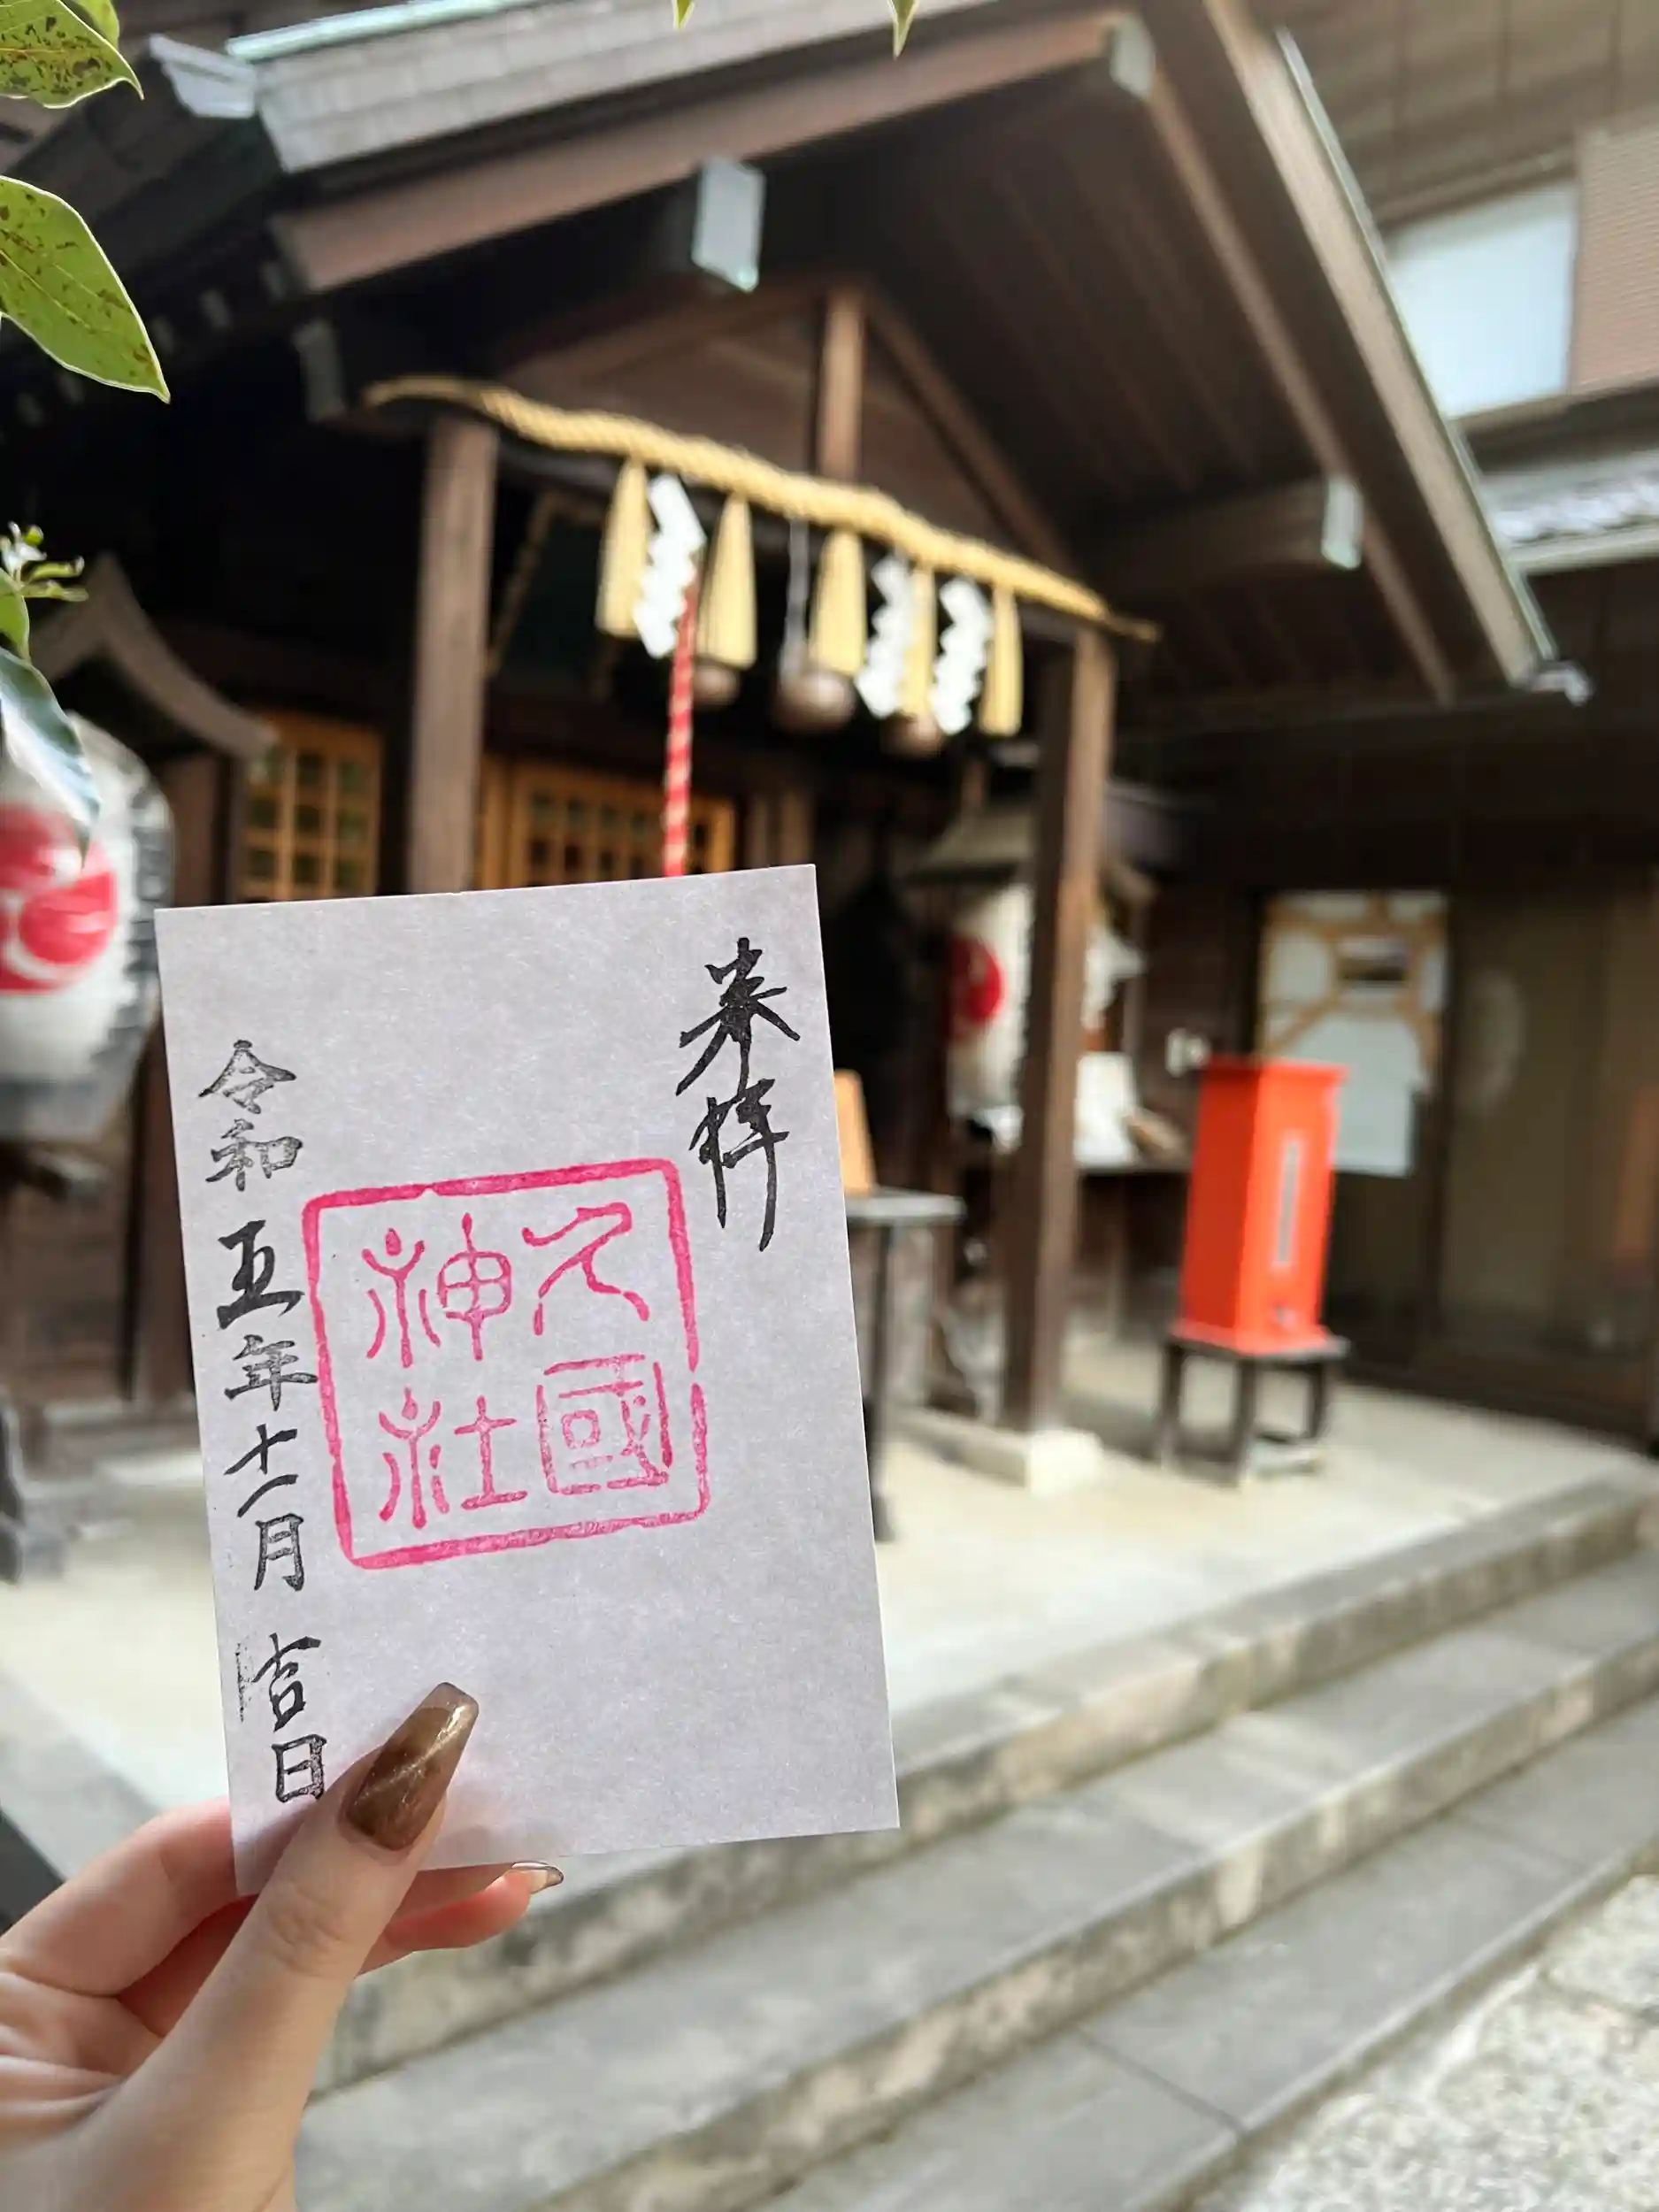 奉拝
久國
神社
令和五年十一月吉日